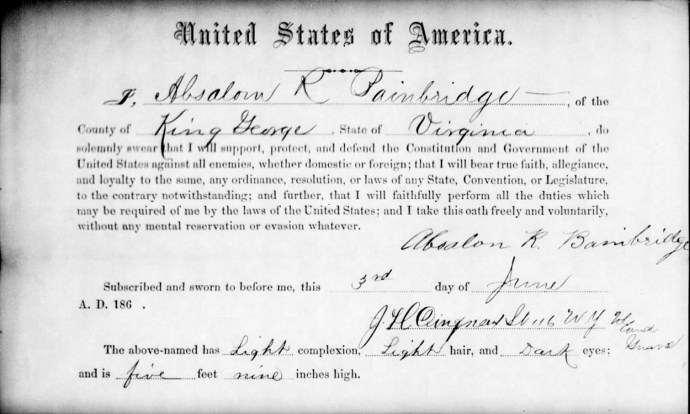 United States of America.
I, Absalom R Bainbridge, of the
County of King George, State of Virginia, do
solemnly swear that I will support, protect, and defend the Constitution and Government of the
United States against all enemies, whether domestic or foreign; that I will bear true faith, allegiance,
and loyalty to the same, any ordinance, resolution, or laws of any State, Convention, or Legislature,
to the contrary notwithstanding; and further, that I will faithfully perform all the duties which
may be required of me by the laws of the United States; and I take this oath freely and voluntarily,
without any mental reservation or evasion whatever.
Absalon R. Bainbridge
Subscribed and sworn to before me, this 3rd day of June
A. D. 186 .
116 N Y
The above-named has Light complexion, Light hair, and Dark eyes;
and is five feet nine inches high.